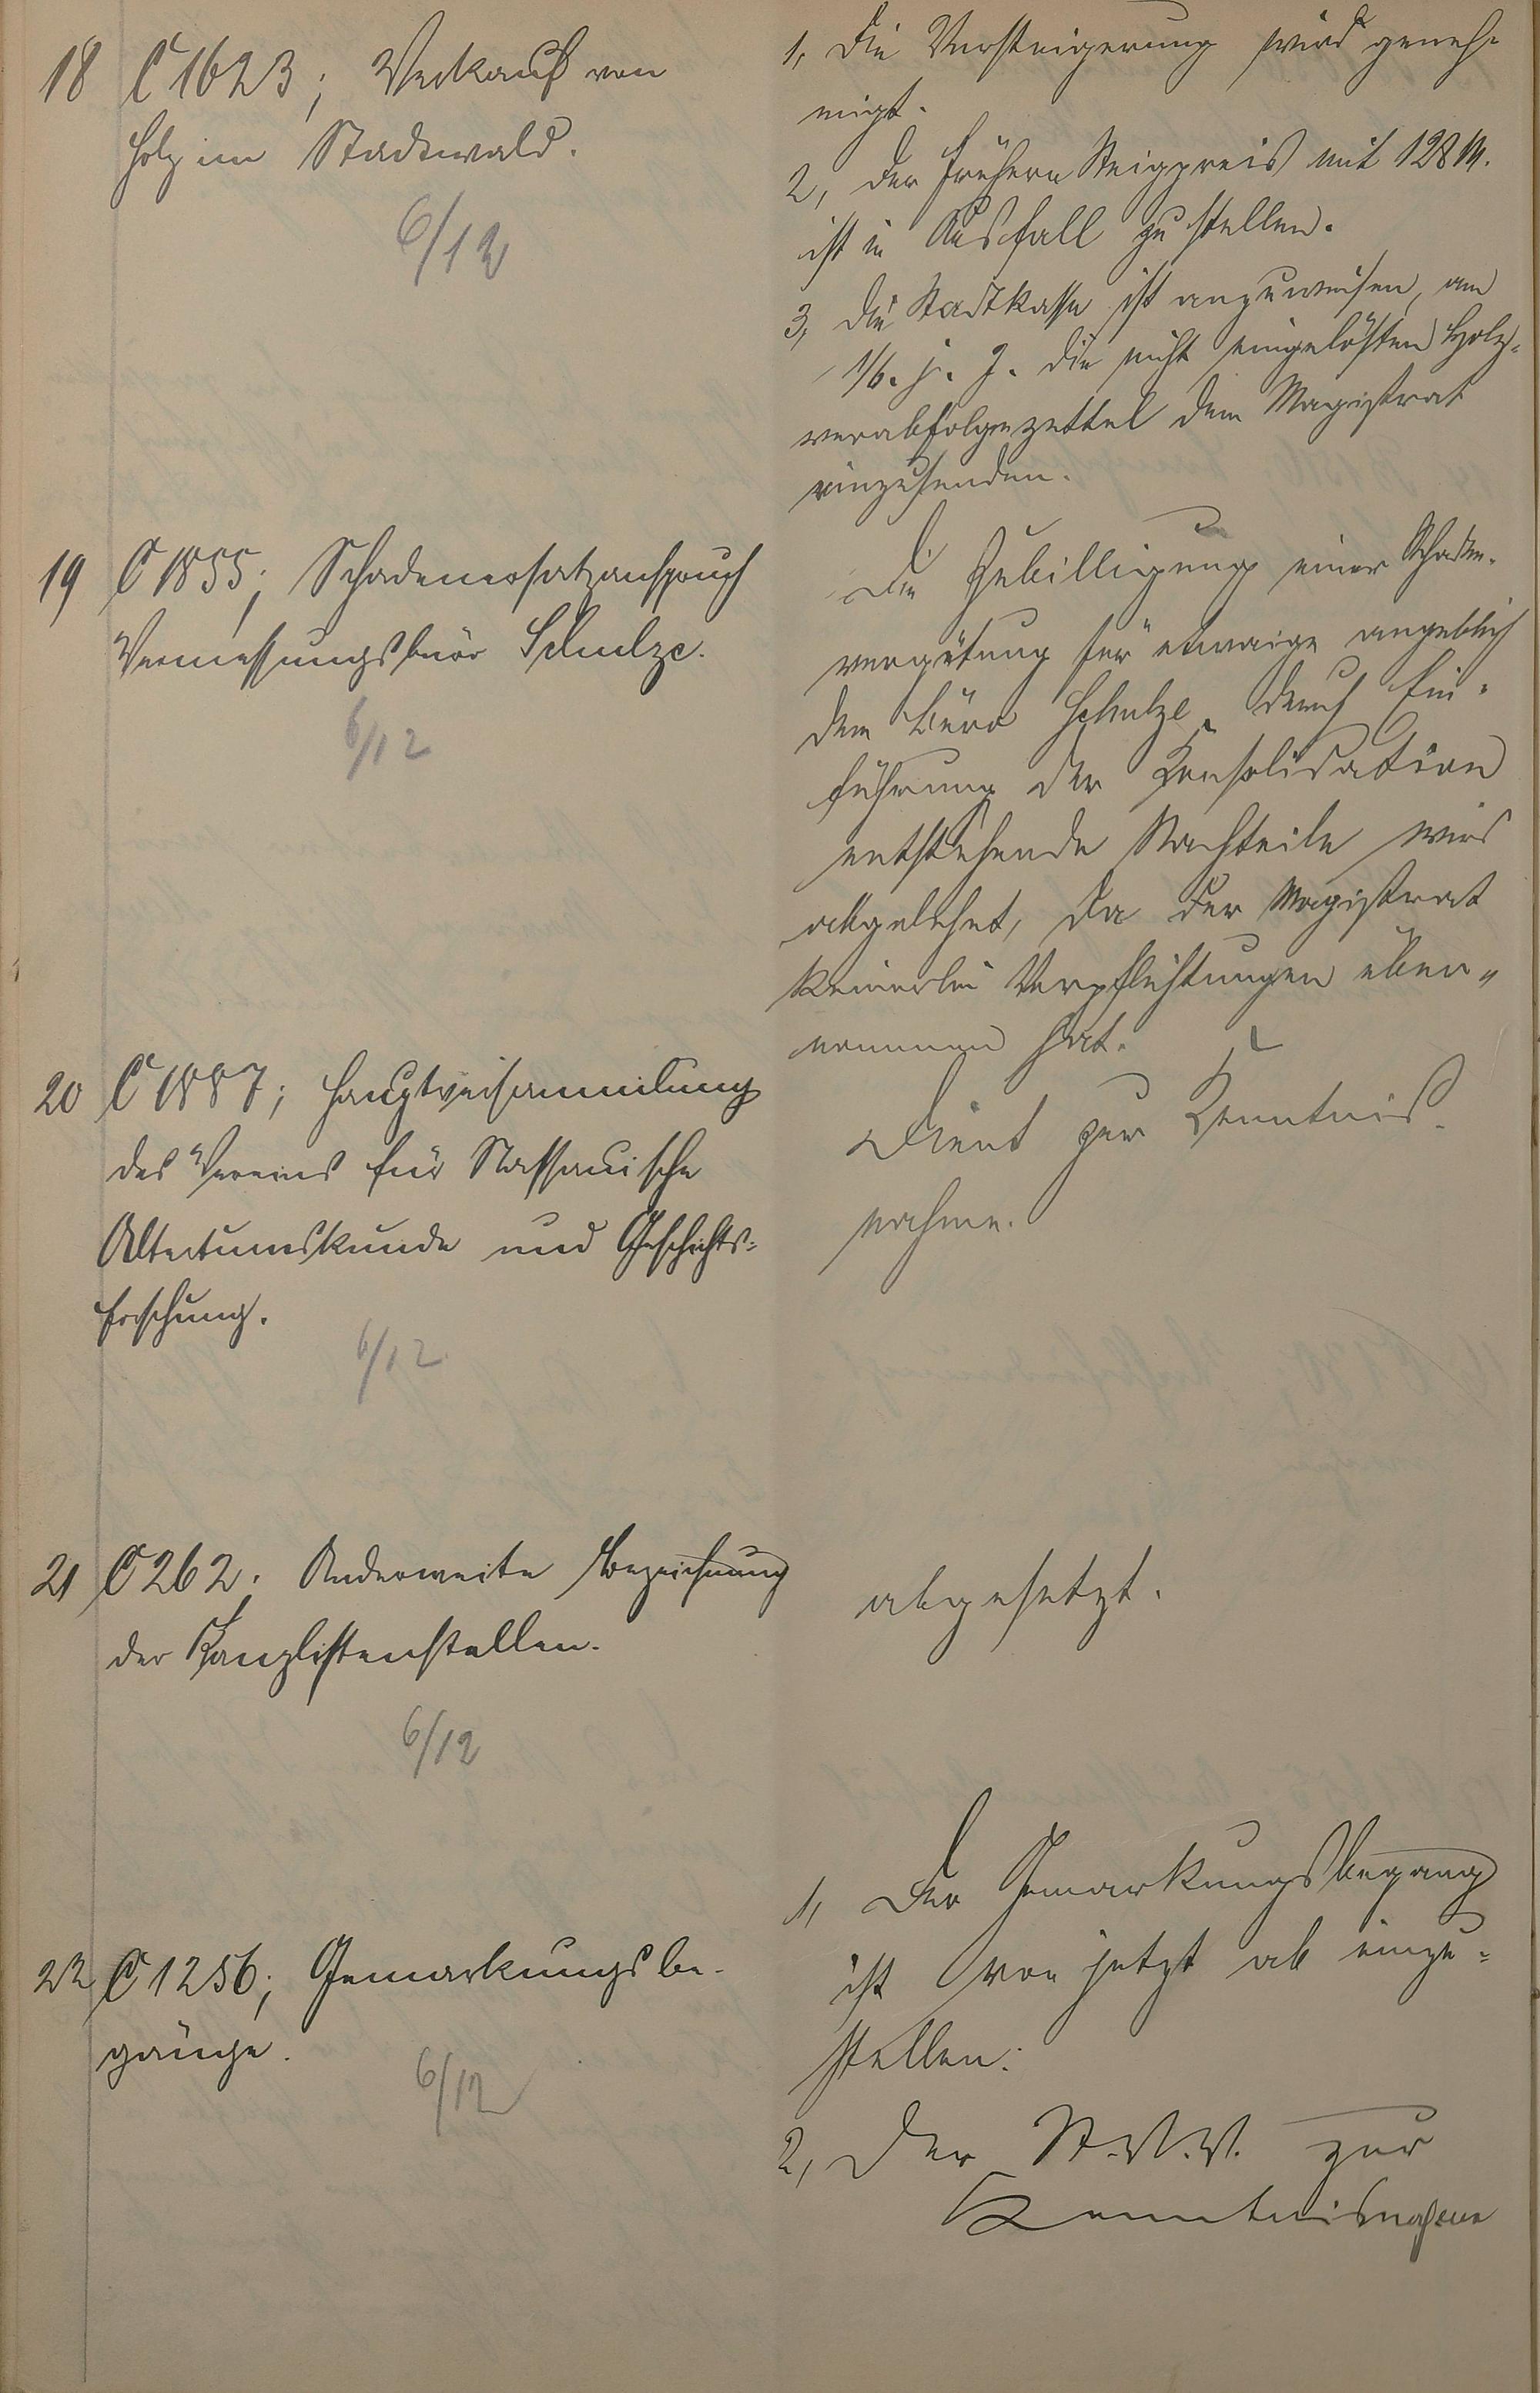 18 C 1623; Verkauf von
Holz im Stadtwald.
6/12
1, Die Versteigerung wird geneh-
migt.
2, Der frühere Steigpreis mit 128 M.
ist in Ausfall zu stellen.
3, Die Stadtkasse ist anzuweisen, am
1/6. j. J. die nicht eingelösten Holz-
verabfolgezettel dem Magistrat
einzusenden.
19 C 1855; Schadenersatzanspruch
Vermessungsbüro Schulze.
6/12
Die Zubilligung einer Schaden-
vergütung für etwaige angeblich
dem Büro Schulze durch Ein-
führung der Konsolidation
entstehende Nachteile wird
abgelehnt, da der Magistrat
keinerlei Verpflichtungen über-
nommen hat.
20 C 1887; Hauptversammlung
des Vereins für Nassauische
Altertumskunde und Geschichts=
forschung.
6/12
Dient zur Kenntnis-
nahme.
21 C 262; Anderweite Bezeichnung
der Kanzlistenstellen.
6/12
abgesetzt.
22 C 1256; Gemarkungsbe-
gänge.
6/12
1, Der Gemarkungsbegang
ist von jetzt ab einzu=
stellen.
2, Der St.V.V. zur
Kenntnisnahme